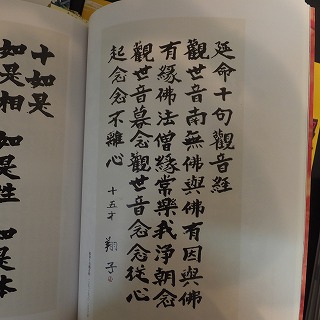 延命十句觀音經
觀世音南無佛與佛有因與佛
有緣佛法僧緣常樂我淨朝念
觀世音暮念觀世音念念從心
起念念不離心
十五才 翔子
十如是
如是相 如是性 如是本